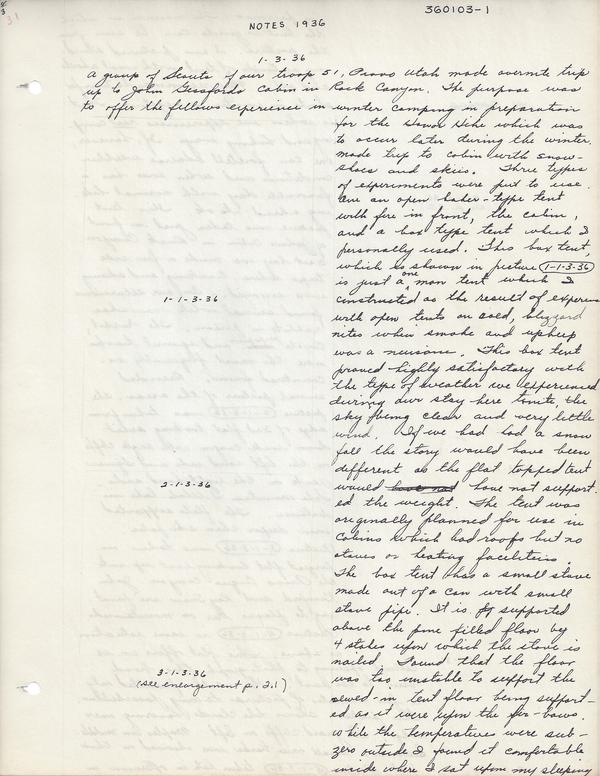 31
360103-1
NOTES 1936
1-3-36
A group of Scouts of our troop 51, Provo Utah made overnite trip
up to John Gessfords Cabin in Rock Canyon. The purpose was
to offer the fellows experience in winter camping in preparation
for the Howr Hike which was
to occur later during the winter.
made trip to cabin with snow-
shoes and skiis. Three types
of experiments were put to use.
One an open baker-type tent
with fire in front, the cabin,
and a box type tent which I
personally used. This box tent,
which is shown in picture 1-1-3-36
is just a one man tent which I
1-1-3-36
constructed as the result of experience
with open tents on cold, blizzard
nites when smoke and upkeep
was a nuisance. This box tent
proved highly satisfactory with
the type of weather we experienced
during our stay here tonite, the
sky being clear and very little
wind. If we had had a snow
fall the story would have been
different as the flat topped tent
2-1-3-36
would have not have not support-
ed the weight. The tent was
originally planned for use in
Cabins which had roofs but no
stoves or heating facilities.
The box tent has a small stove
made out of a can with small
stove pipe. It is supported
above the pine filled floor by
4 stakes upon which the stove is
nailed. Found that the floor
3-1-3-36
was too unstable to support the
(see enlargement p. 2.1)
sewed-in tent floor being support-
ed as it were upon the fir-bows.
While the temperatures were sub-
zero outside I found it comfortable
inside where I sat upon my sleeping